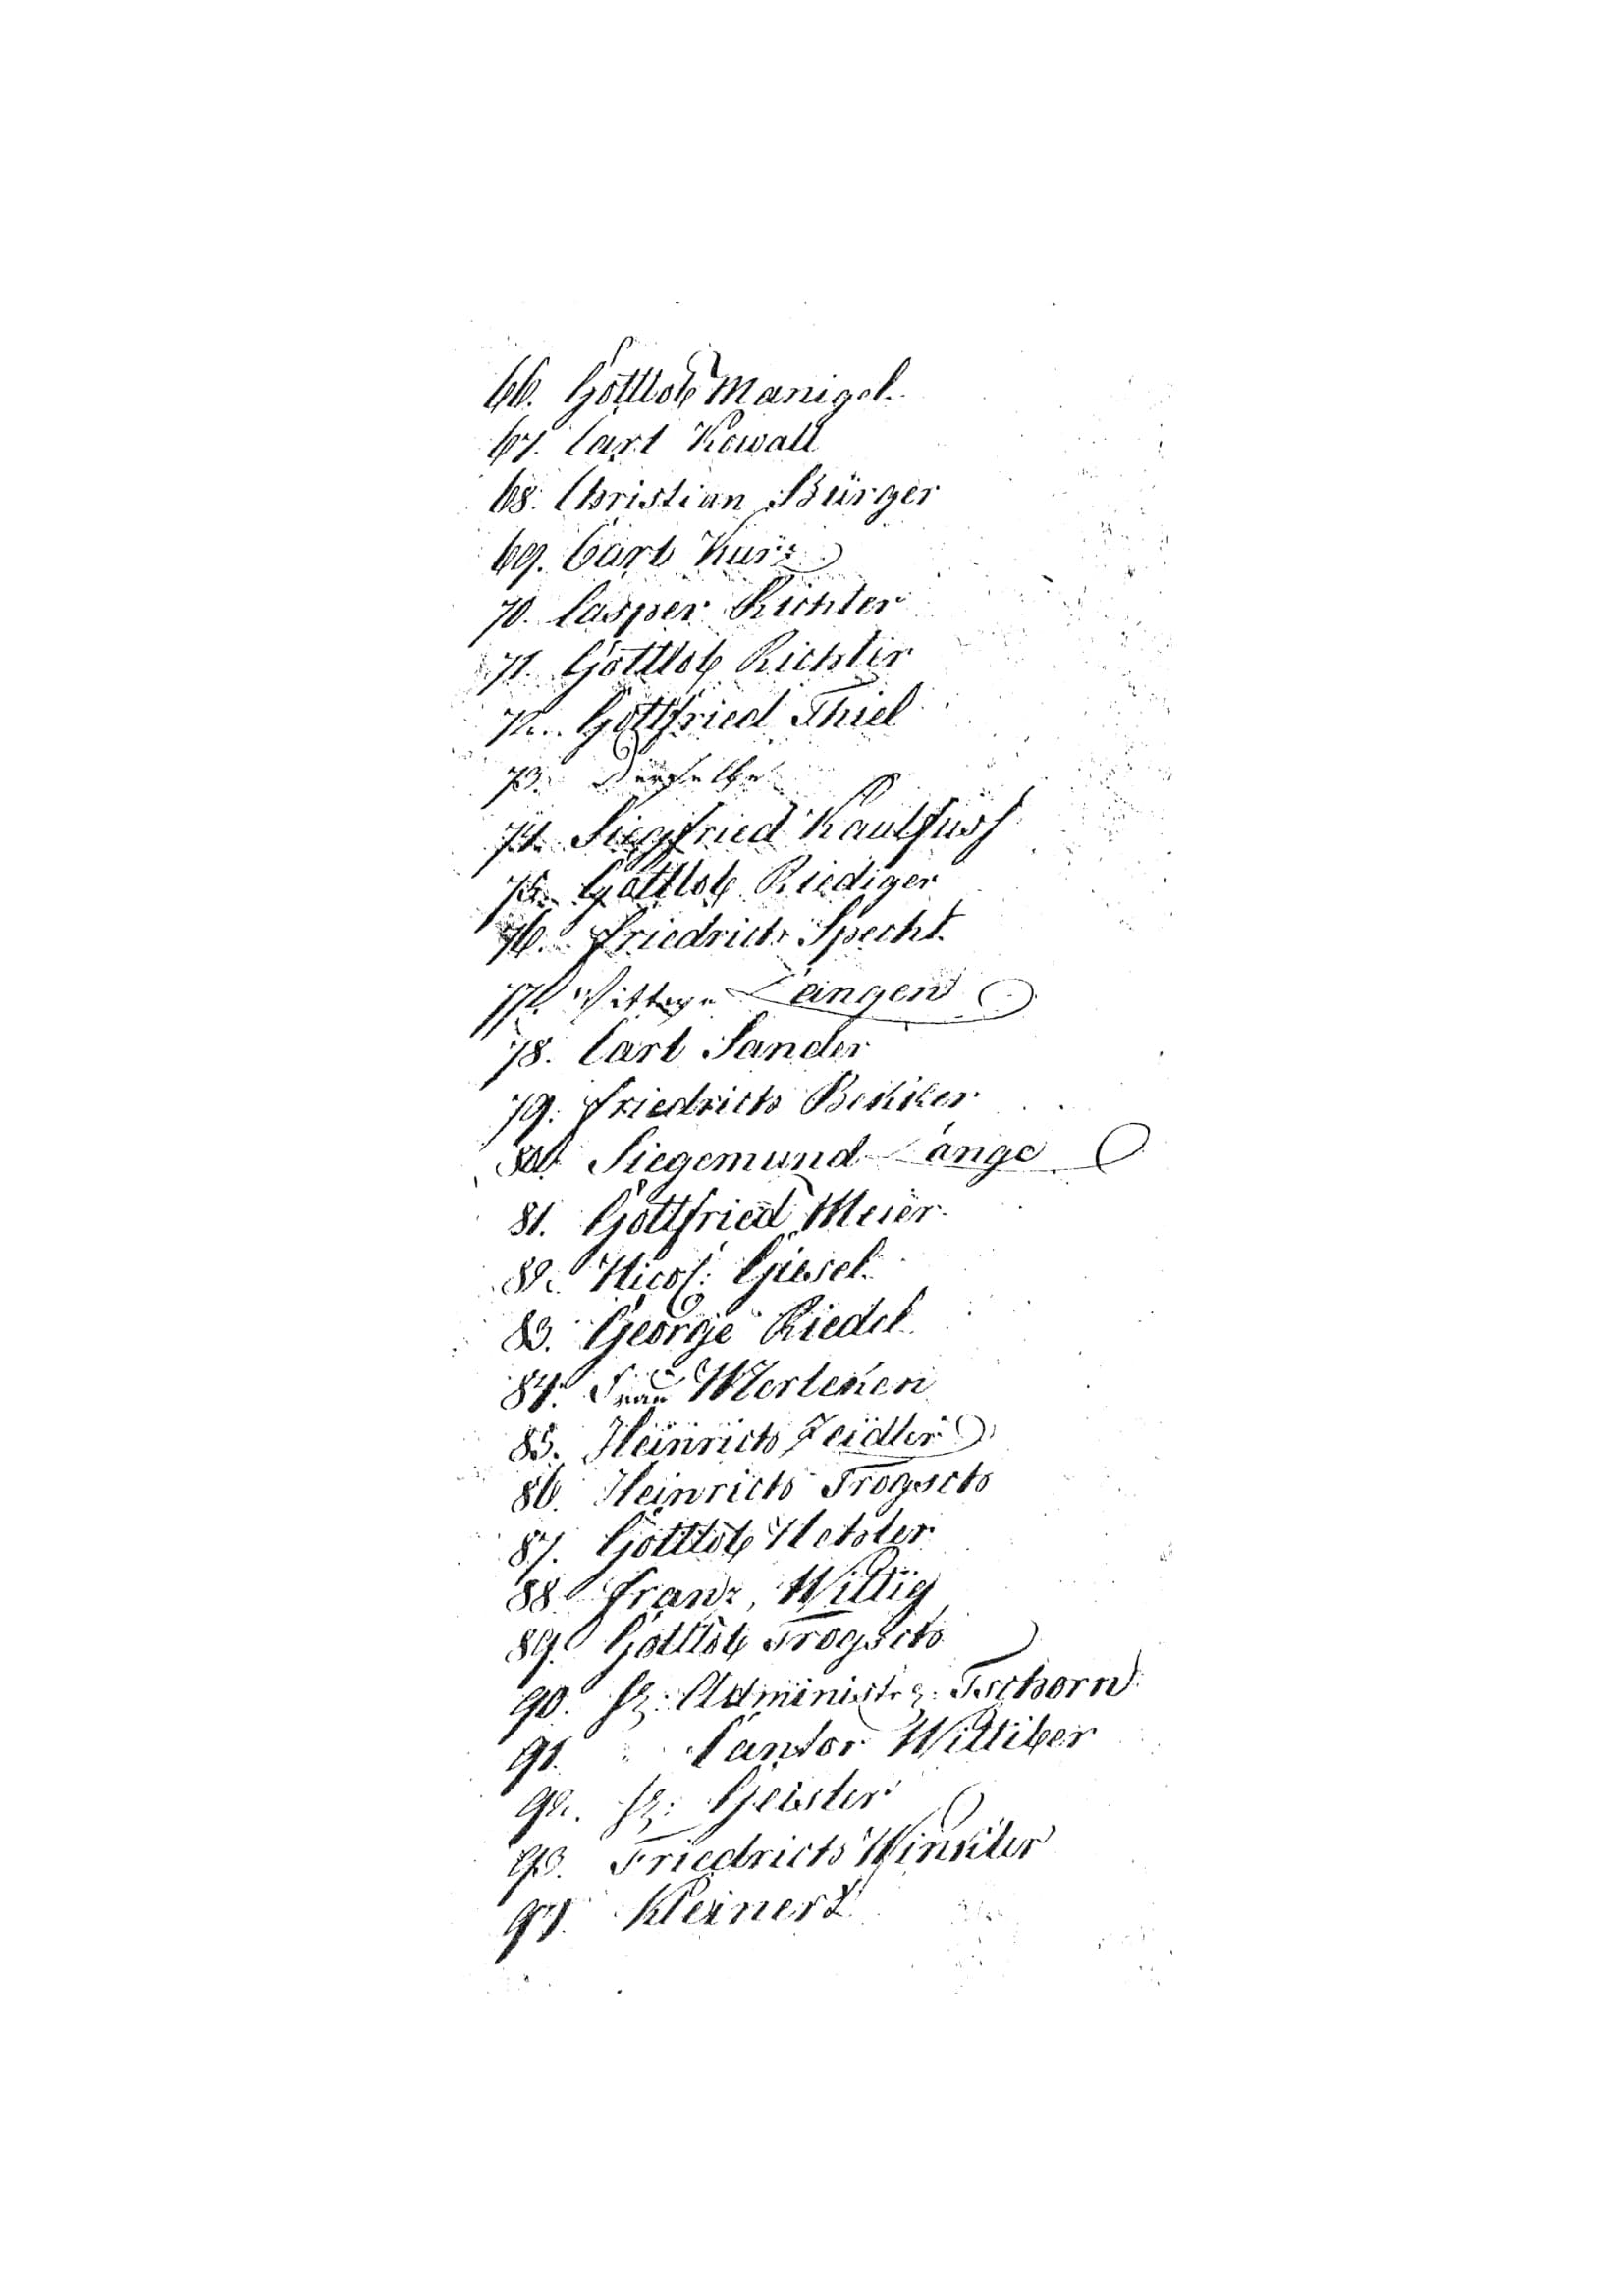 66. Gottlob Manigel.
67. Carl Kowall
68. Christian Bürger
69. Carl Kurz
70. Casper Richter
71. Gottlob Richter
72. Gottfried Thiel
73. Derselbe
74. Siegfried Kaulfuss
75. Gottlob Riediger
76. Friedrich Specht.
77. Wittwe Langen
78. Carl Sander
79. Friedrich Bekker
80. Siegemund Lange
81. Gottfried Meier.
82. Nicol: Giesel.
83. George Riedel.
84. Frau Merleken
85. Heinrich Zeidler
86. Heinrich Trogsch
87. Gottlob
88. Franz Wittig
89. Gottlob Trogsch
90. Hr: Administr: Tschorn
91. " Cantor Wittiber
92. Hr: Geisler
93. Friedrich Winkler
94. Kleinert